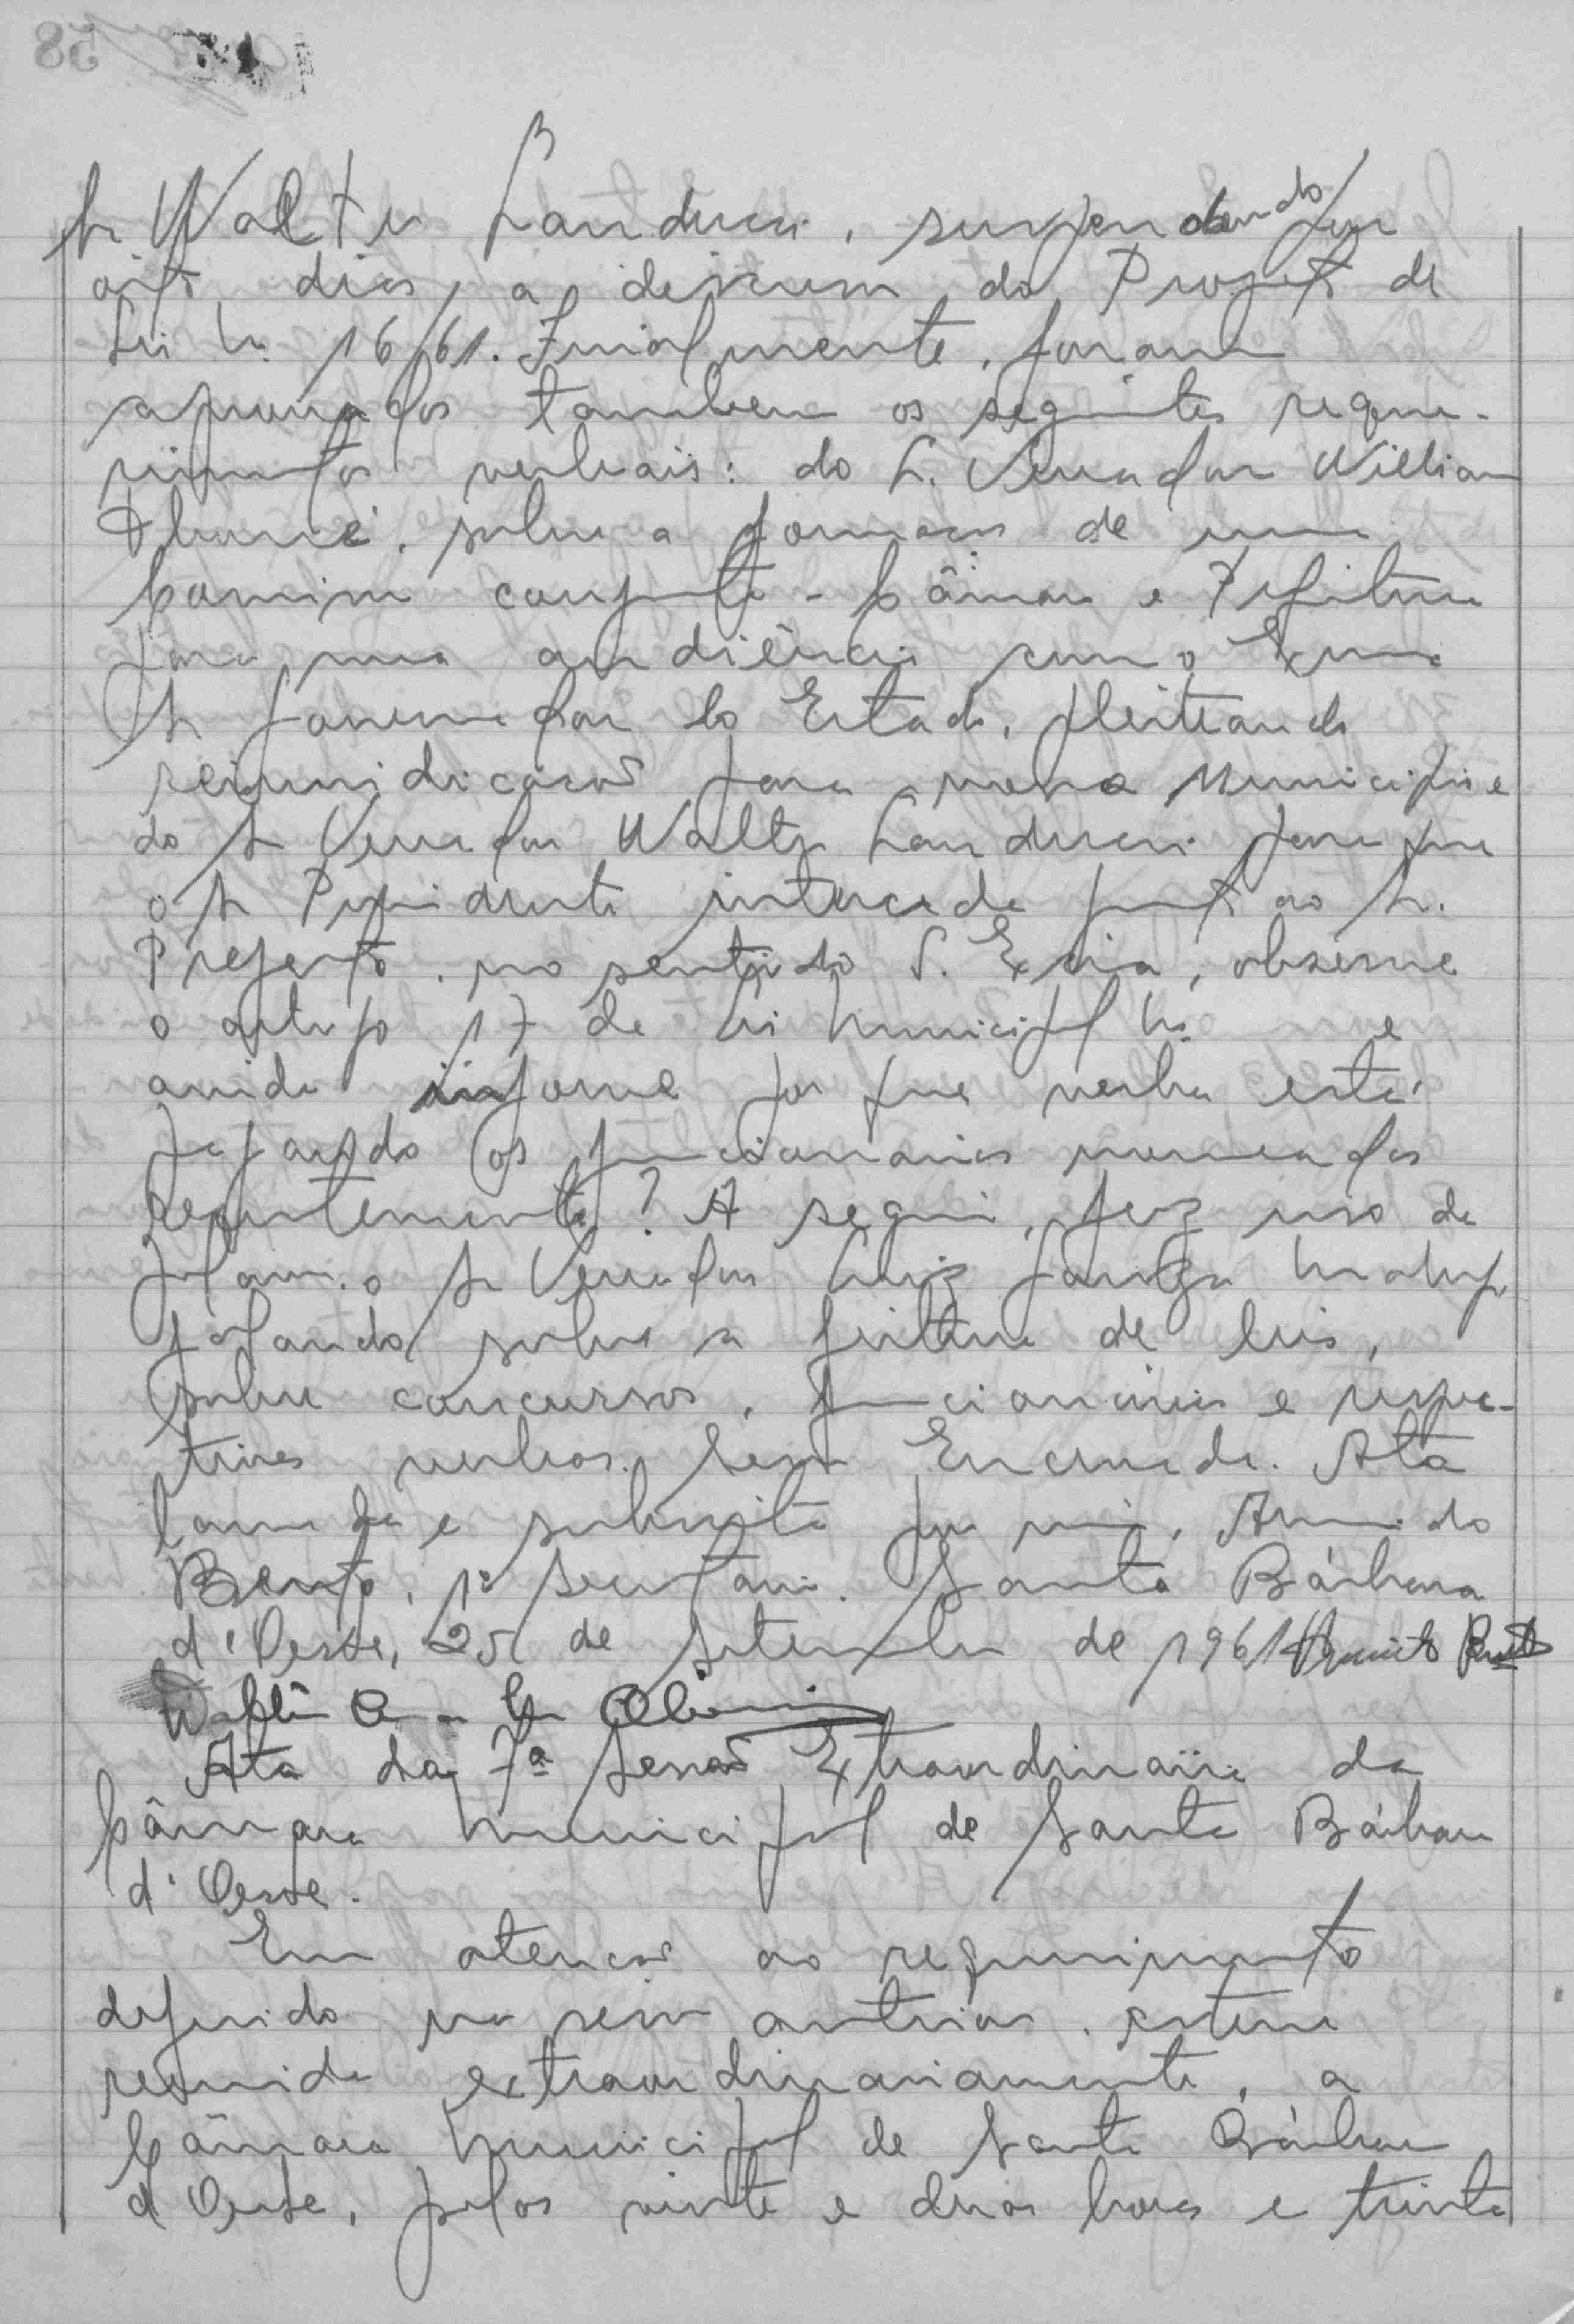 Sr Walter Landucci, suspendendo por
oito dias, a discussão do Projeto de
Lei n. 16/61. Finalmente, foram
aprovados tambem os seguintes reque-
rimentos verbais: do S. Vereador Willian
sobre a formação de uma
Comissão conjunta - Câmara e Prefeitura
para uma audiência com o Exmo
Sr Governador do Estado, pleiteando
reivindicações para nosso Municipio e
do Sr Vereador Walter Landucci para que
o Sr Presidente interceda junto ao Sr.
Prefeito, no sentido S. Excia, observe
o artigo 17 da Lei Municipal no e
ainda informe por que verba está
pagando os funcionarios nomeados
recentemente? A seguir, fez uso da
palavra o Sr Vereador Luiz
falando sobre a feitura de leis,
sobre concursos, funcionários e respec-
tivas verbas. Sessão Encerrada. Ata
lavrada e subscrita por mim, Arnaldo
Bento, 1º Secretario. Santa Bárbara
d'Oeste, 25 de Setembro de 1961
Ata da 7ª Sessão Extraordinária da
Câmara Municipal de Santa Bárbara
d'Oeste.
Em atenção ao requerimento
deferido na sessão anterior, esteve
reunida extraordinariamente, a
Câmara Municipal de Santa Bárbara
d'Oeste, pelas vinte e duas horas e trinta